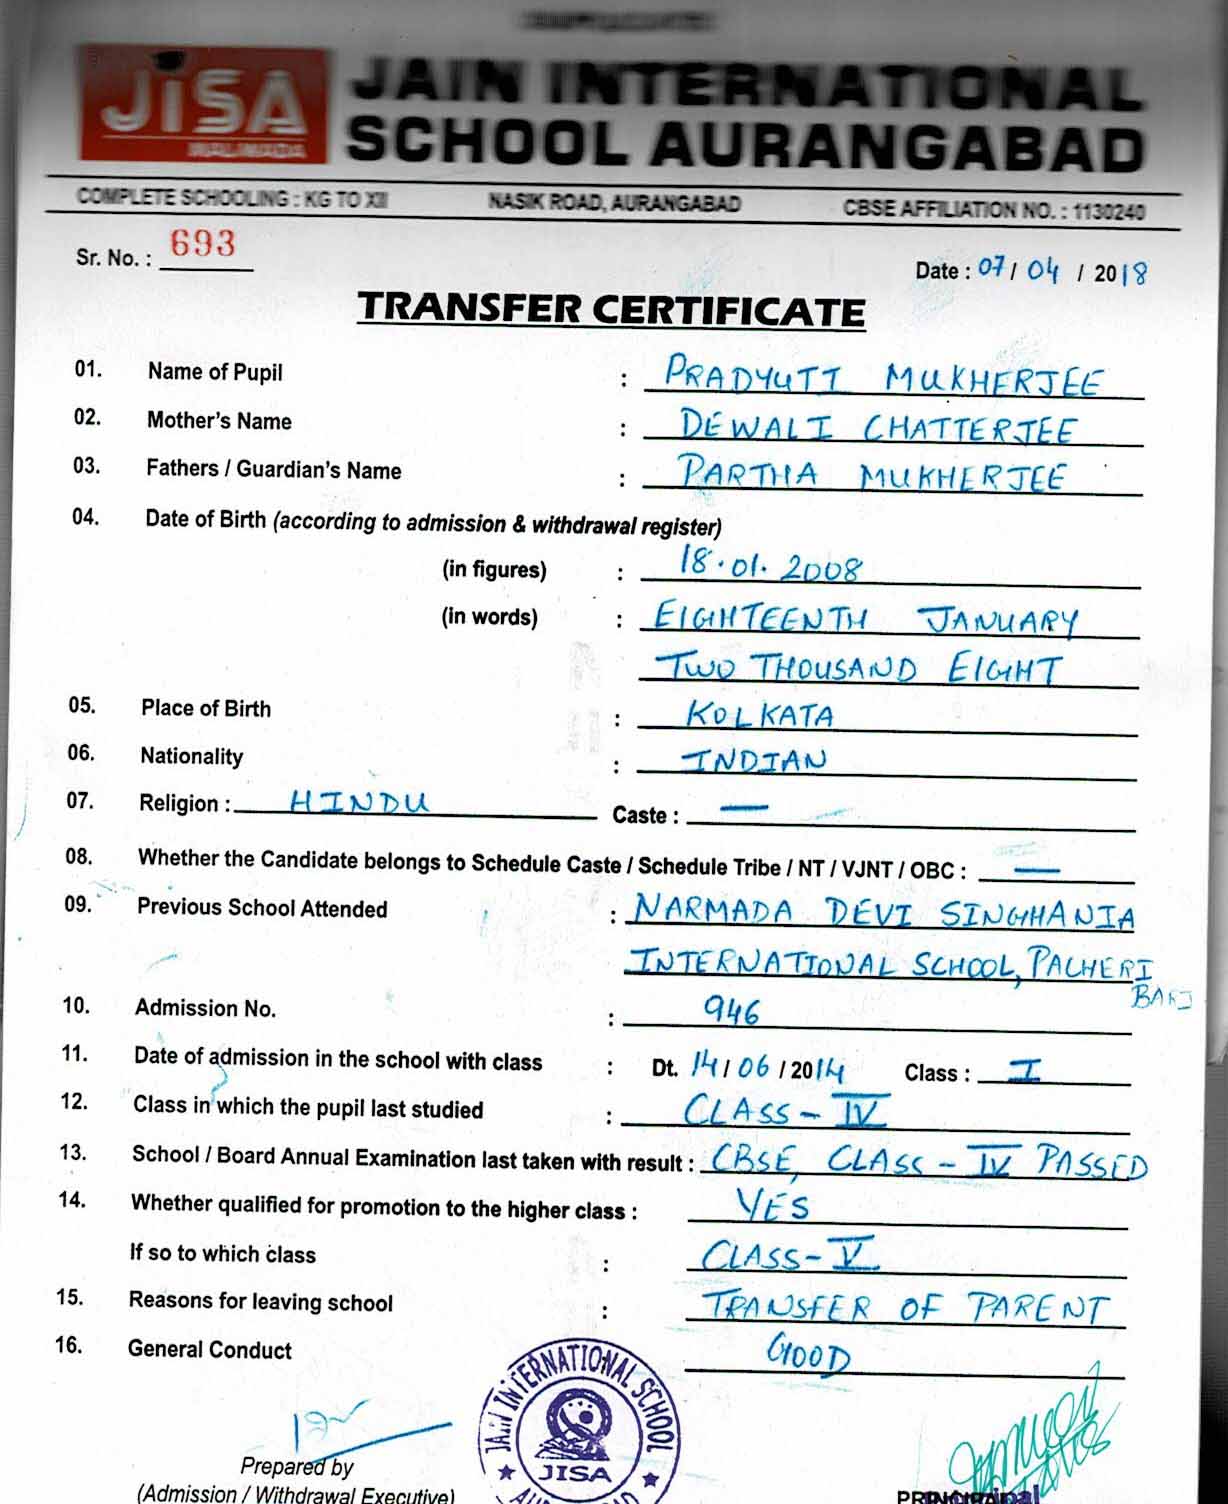 JiSA
WALMIADA
JAIN INTERNATIONAL
SCHOOL AURANGABAD
COMPLETE SCHOOLING : KG TO XII NASIK ROAD, AURANGABAD CBSE AFFILIATION NO. : 1130240
Sr. No. : 693
Date : 07 / 04 / 2018
TRANSFER CERTIFICATE
01. Name of Pupil : PRADYUTI MUKHERJEE
02. Mother's Name : DEWALI CHATTERJEE
03. Fathers / Guardian's Name : PARTHA MUKHERJEE
04. Date of Birth (according to admission & withdrawal register)
(in figures) : 18.01.2008
(in words) : EIGHTEENTH JANUARY
TWO THOUSAND EIGHT
05. Place of Birth : KOLKATA
06. Nationality : INDIAN
07. Religion : HINDU Caste : —
08. Whether the Candidate belongs to Schedule Caste / Schedule Tribe / NT / VJNT / OBC : —
09. Previous School Attended : NARMADA DEVI SINGHANIA
INTERNATIONAL SCHOOL, PACHERI
BARI
10. Admission No. : 946
11. Date of admission in the school with class : Dt. 14 / 06 / 2014 Class : I
12. Class in which the pupil last studied : CLASS - IV
13. School / Board Annual Examination last taken with result : CBSE, CLASS - IV PASSED
14. Whether qualified for promotion to the higher class : YES
If so to which class : CLASS - V
15. Reasons for leaving school : TRANSFER OF PARENT
16. General Conduct GOOD
JAIN INTERNATIONAL SCHOOL
JISA
AURANGABAD
Prepared by
(Admission / Withdrawal Executive)
PRINCIPAL
Principal